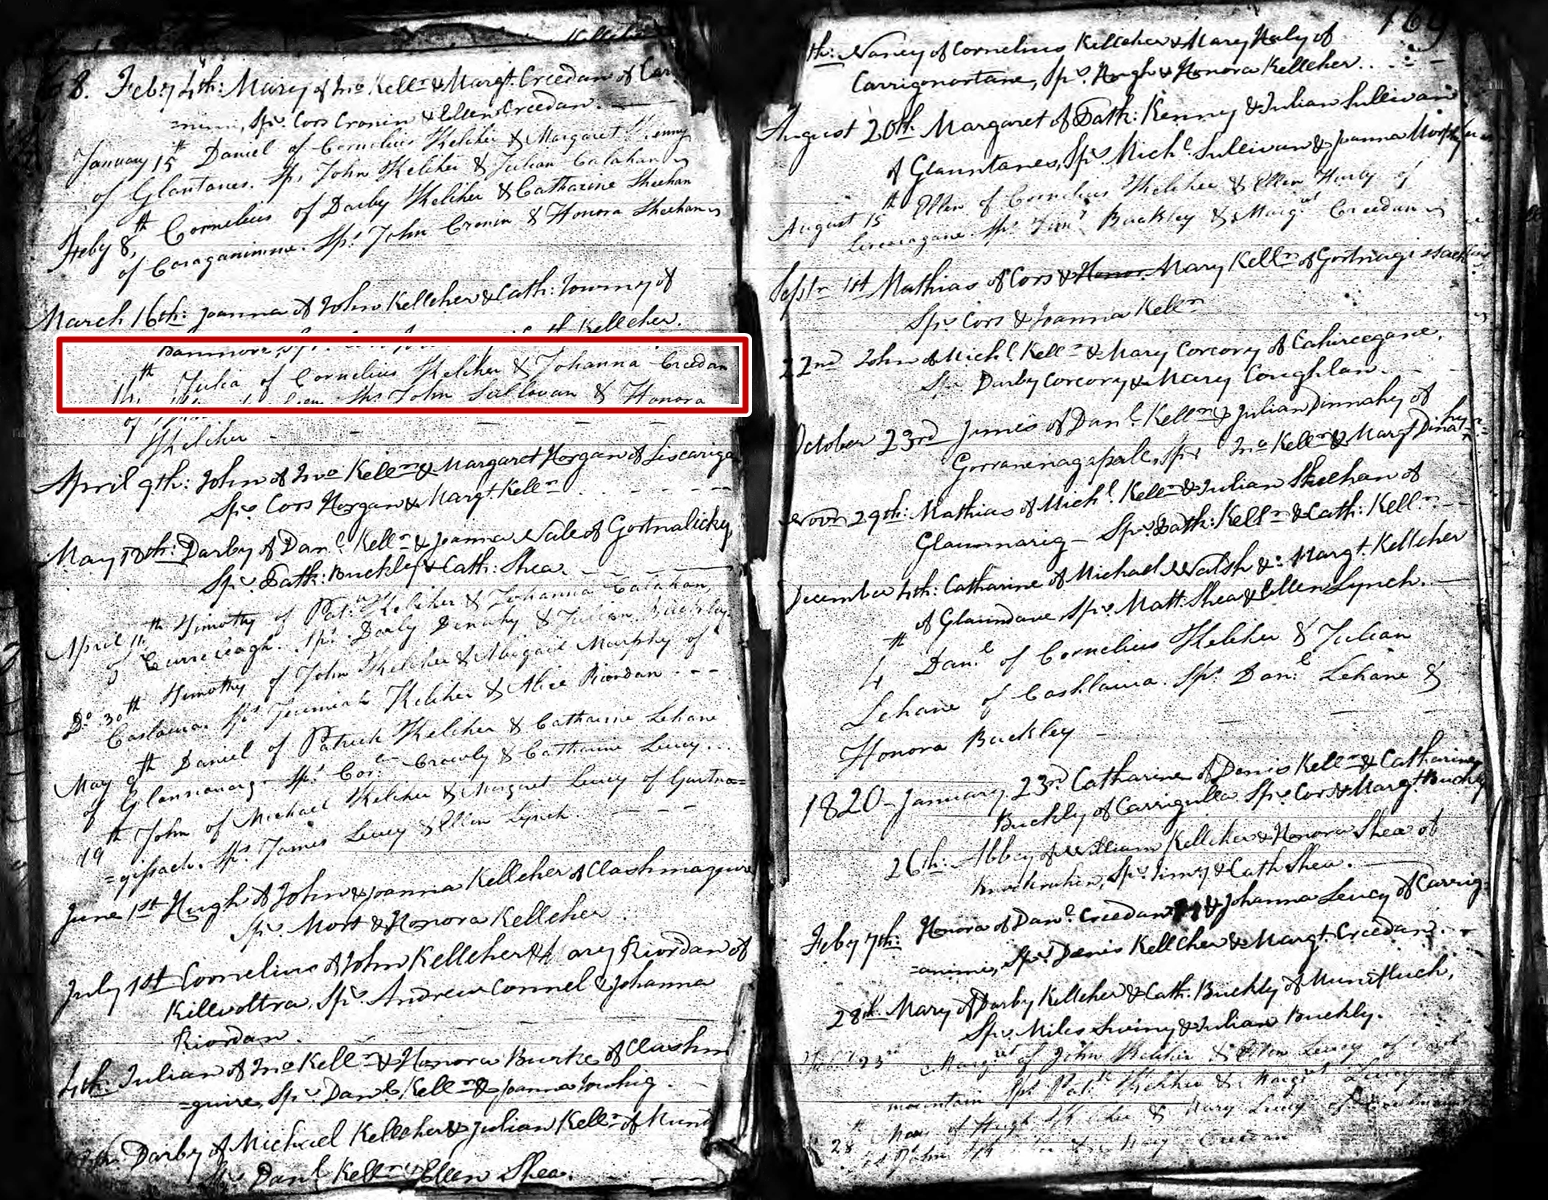 168. Feby 4th: Mary of Jno Kellr & Margt. Creedan of Car
=nimi, Sprs. Cors Cronin & Ellen Creedan.
January 15th Daniel of Cornelius Kelcher & Margaret Kenny
of Glantanes. Sprs John Kelcher & Julian Calahan
Feby 8th, Cornelius of Darby Kelcher & Catharine Sheehan
of Caraganimme. Sprs John Cronin & Honora Sheehan
March 16th: Joanna of John Kelleher & Cath: Twomy of
Cath Kelleher.
11th Julia of Cornelius Kelcher & Johanna Creedan
of Sprs John Sullovan & Honora
Kelcher
April 9th: John of Jno Kellr & Margaret Horgan of Liscariga
Sprs Cors Horgan & Margt Kellr
May 13th: Darby of Danl. Kellr & Joanna Nale of Gortnalicky,
Sprs. Path: Buckley & Cath: Shea.
April 11th Timothy of Pat: Kelcher & Johanna Calahan,
of Curreleagh. Sprs. Darby Denahy & Julian Buckley.
Do 30th Timothy of John Kelcher & Abigail Murphy of
Caslawn. Sprs Jeremiah Kelcher & Alice Riordan
May 9th Daniel of Patrick Kelcher & Catharine Lehane
of Glannanarg Sprs Cors Crowly & Catharine Lucey
19th John of Michael Kelcher & Margaret Lucey of Gurtna=
=gissach. Sprs. James Lucey & Ellen Lynch.
June 1st Hugh of John & Joanna Kelleher of Clashmaguire
Sprs. Mort & Honora Kelleher
July 1st Cornelius of John Kelleher & Mary Riordan of
Killvoltra, Sprs. Andrew Connel & Johanna
Riordan.
4th: Julian of Jno Kellr & Honora Burke of Clashm
=guire, Sprs. Danl. Kellr & Joanna Twohig.
Darby of Michael Kelleher & Julian Kellr of Mun
Sprs. Danl Kellr & Ellen Shea.
169
th: Nancy of Cornelius Kelleher & Mary Haly of
Carrigonortane, Sprs. Hugh & Honora Kelleher
August 20th. Margaret of Path: Kenny & Julian Sullivan
of Glauntanes, Sprs. Michl. Sullivan & Joanna Murphy
August 15th Ellen of Cornelius Kelcher & Ellen Hurly of
Sprs. Timt Buckley & Margret Creedan
Septr 1st Mathias of Cors & Honor Mary Kellr of Gortnagissach
Sprs Cors & Joanna Kellr
22nd John of Michl. Kellr & Mary Corcory of Cahireegane,
Sprs Darby Corcory & Mary Coughlan
October 23rd James of Danl. Kellr & Julian Dinnahy of
Sprs Jno Kellr & Margt Dinahy
Novr 29th: Mathias of Michl. Kellr & Julian Sheehan of
Glaunnarig - Sprs. Path: Kellr & Cath: Kellr
December 4th: Catharine of Michael Walsh & Margt. Kelleher
of Glaundave, Sprs. Matt. Shea & Ellen Lynch.
4th Danl of Cornelius Kelcher & Julian
Lehane of Cashlawn. Sprs. Danl Lehane &
Honora Buckley
1820 - January 23rd Catharine of Denis Kellr & Catharine
Buckly of Carrigulla Sprs Cors & Margt Buckly
26th: Abbey of William Kelleher & Honora Shea of
Sprs. Timy & Cath Shea.
Feby 7th: Honora of Danl. Creedan & Johanna Lucey of Carrig=
=animi, Sprs. Denis Kelleher & Margt. Creedan.
28th Mary of Darby Kelleher & Cath. Buckly of Muniflueh,
Sprs. Miles Swiny & Julian Buckly.
23rd Margret of John Kelcher & Ellen Lucey of
mountain Sprs Patk Kelcher & Margret Lucey
28th Mary of Hugh Kelcher & Mary Lucey of
John & Mary Creedan